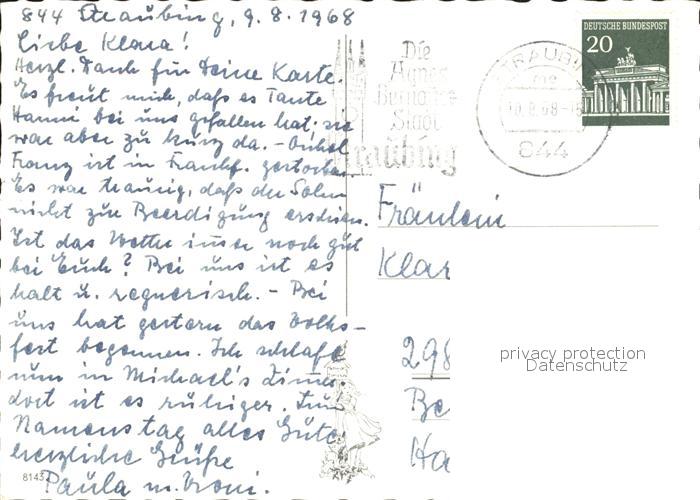 844 Straubing, 9.8.1968
Liebe Klara!
Herzl. Dank für Deine Karte.
Es freut mich, daß es Tante
Hanni bei uns gefallen hat, sie
war aber zu kurz da. - Onkel
Franz ist in Frankf. gestorben
Es war traurig, daß der Sohn
nicht zur Beerdigung erschien.
Ist das Wetter immer noch gut
bei Euch? Bei uns ist es
kalt u. regnerisch. - Bei
uns hat gestern das Volks-
fest begonnen. Ich schlafe
nun in Michael's Zimmer
dort ist es ruhiger. Zum
Namenstag alles Gute
herzliche Grüße
Paula u. Vroni.
8143
Die
Agnes
Bernauer
Stadt
Straubing
STRAUBING
10.8.68
844
DEUTSCHE BUNDESPOST
20
Fräulein
Klar
298
Be
Ha
privacy protection
Datenschutz